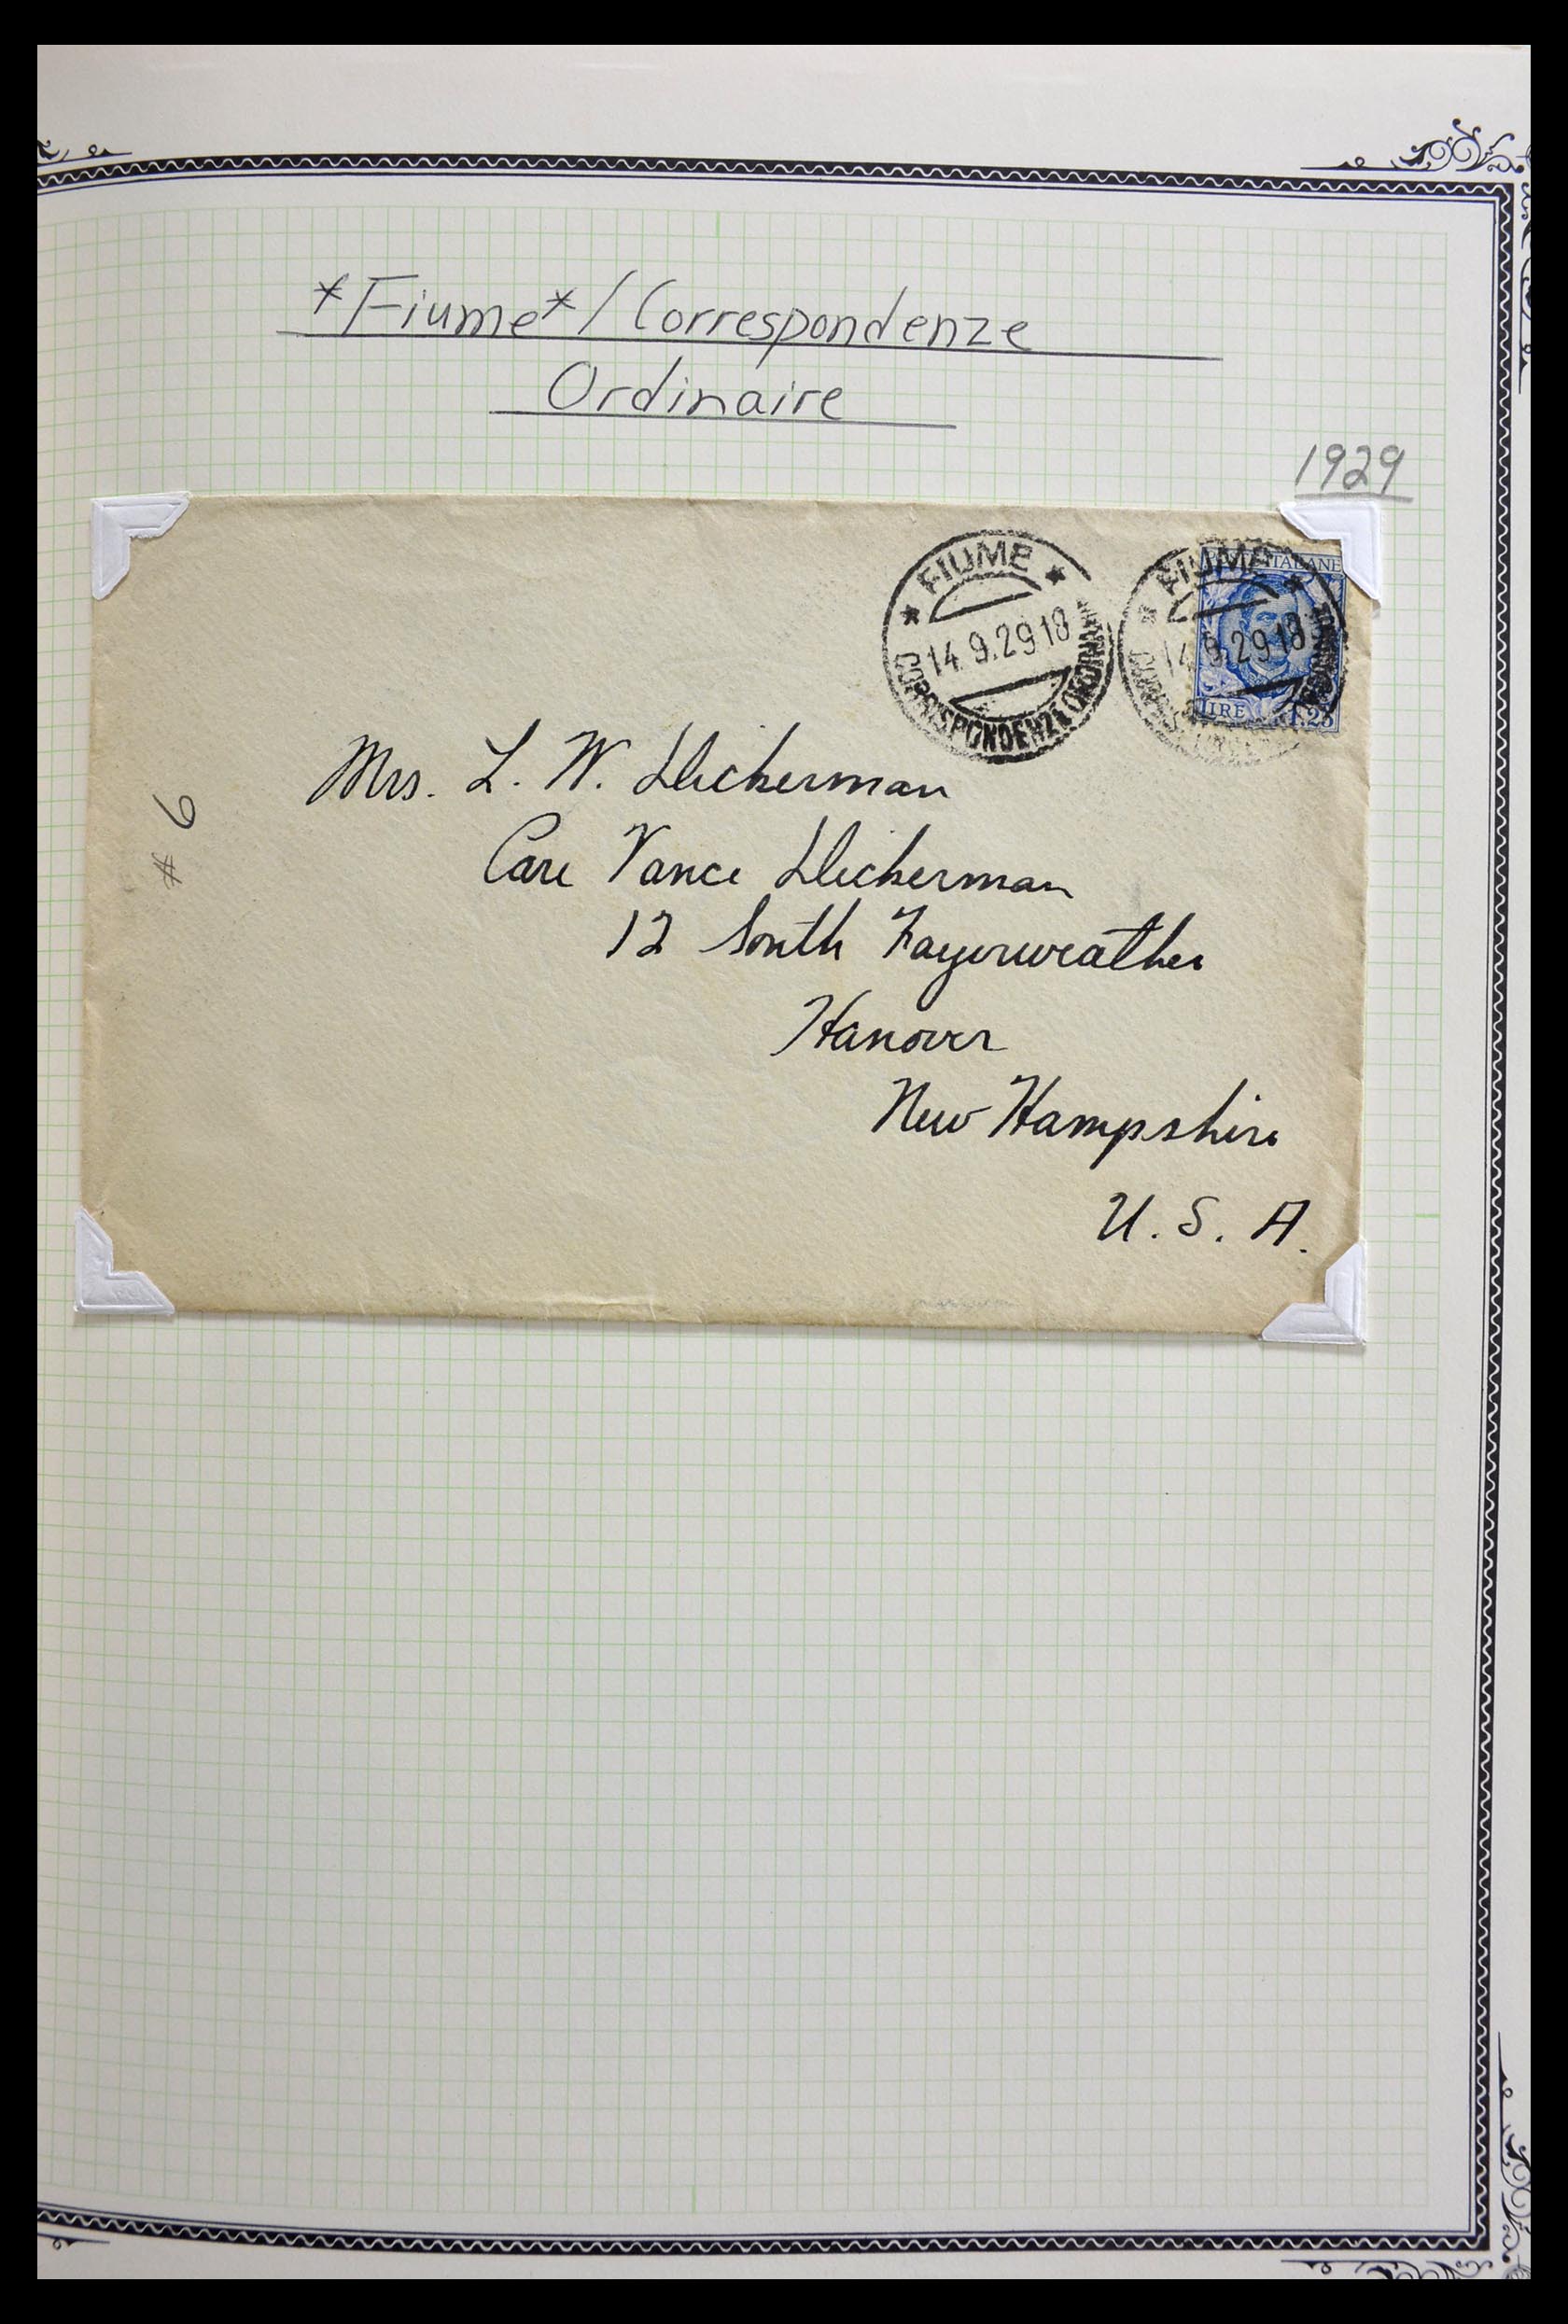 *Fiume*/Correspondenze
Ordinaire
1929
* FIUME *
14.9.29 18
CORRISPONDENZE ORDINARIE
* FIUME *
14.9.29 18
ITALIANE
LIRE 1,25
Mrs. L. W. Dickerman
Care Vance Dickerman
12 South Fayerweather
Hanover
New Hampshire
U. S. A.
# 6